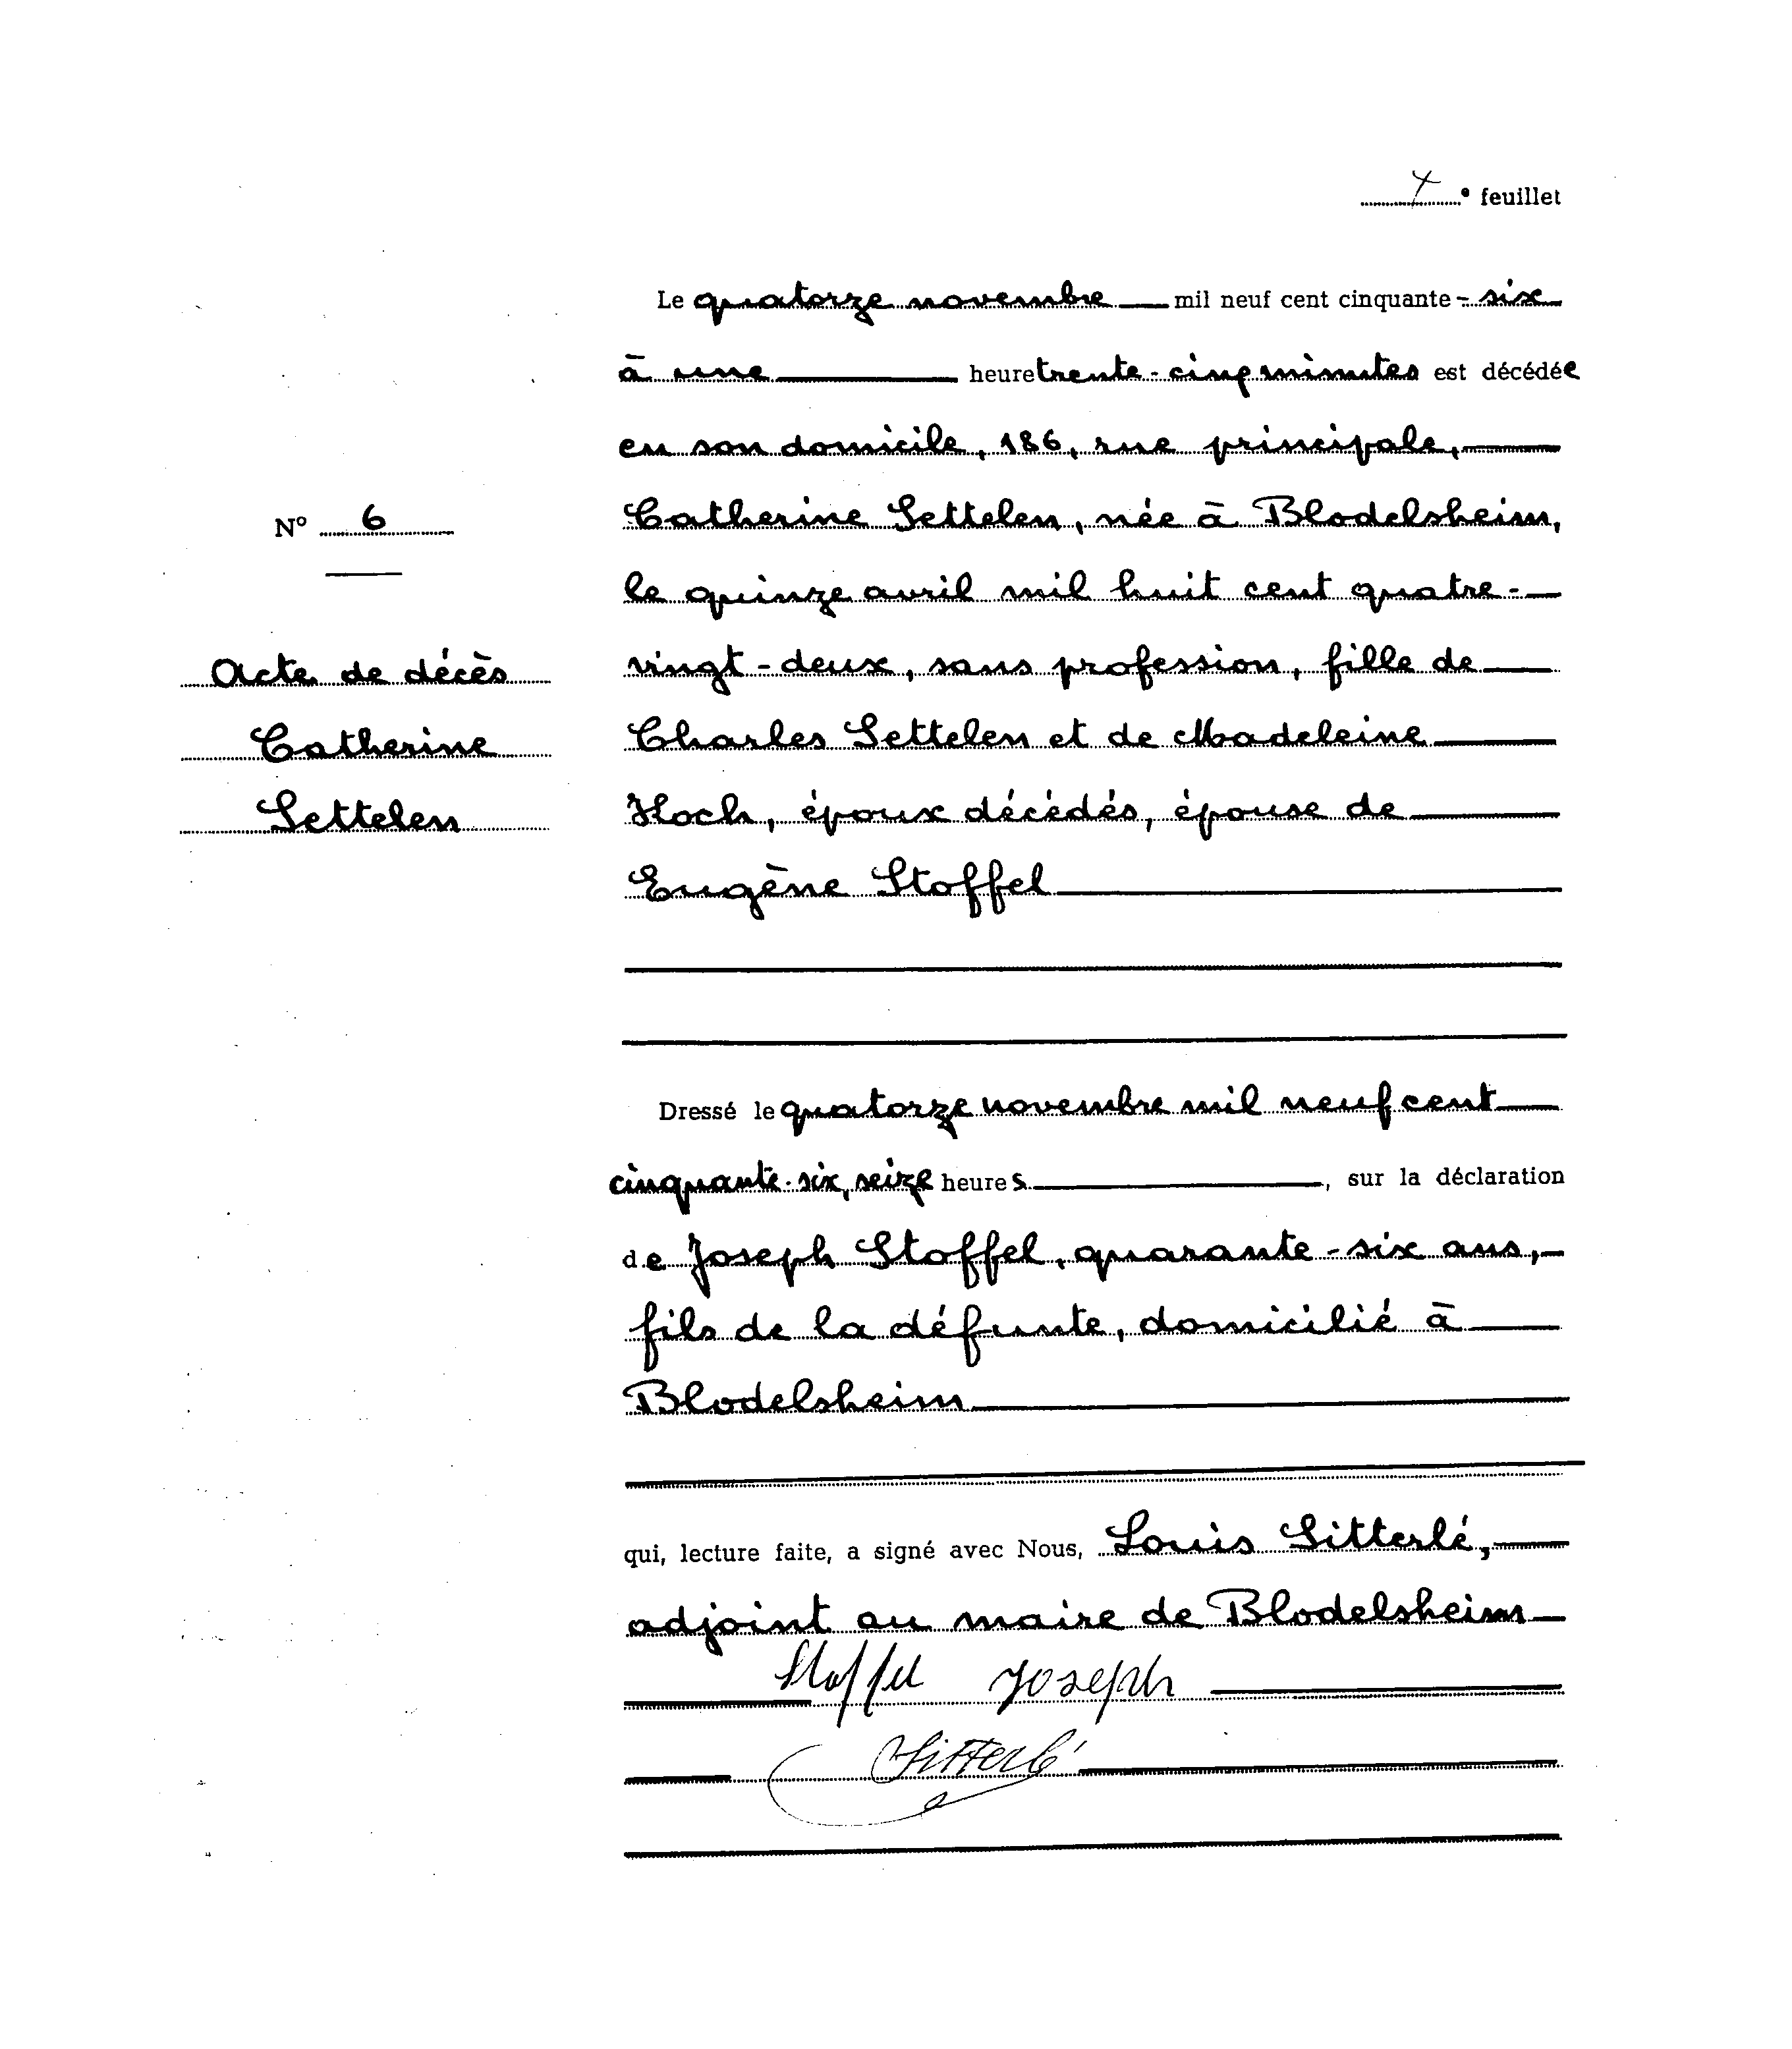 7e feuillet
Le quatorze novembre mil neuf cent cinquante - six
à une heure trente-cinq minutes est décédée
en son domicile, 186, rue principale,
N° 6
Catherine Settelen, née à Blodelsheim,
le quinze avril mil huit cent quatre-
Acte de décès
vingt-deux, sans profession, fille de
Catherine
Charles Settelen et de Madeleine
Settelen
Hoch, époux décédés, épouse de
Eugène Stoffel
Dressé le quatorze novembre mil neuf cent
cinquante-six, seize heures, sur la déclaration
de Joseph Stoffel, quarante-six ans,
fils de la défunte, domicilié à
Blodelsheim
qui, lecture faite, a signé avec Nous, Louis Sitterlé,
adjoint au maire de Blodelsheim
Stoffel Joseph
Sitterlé